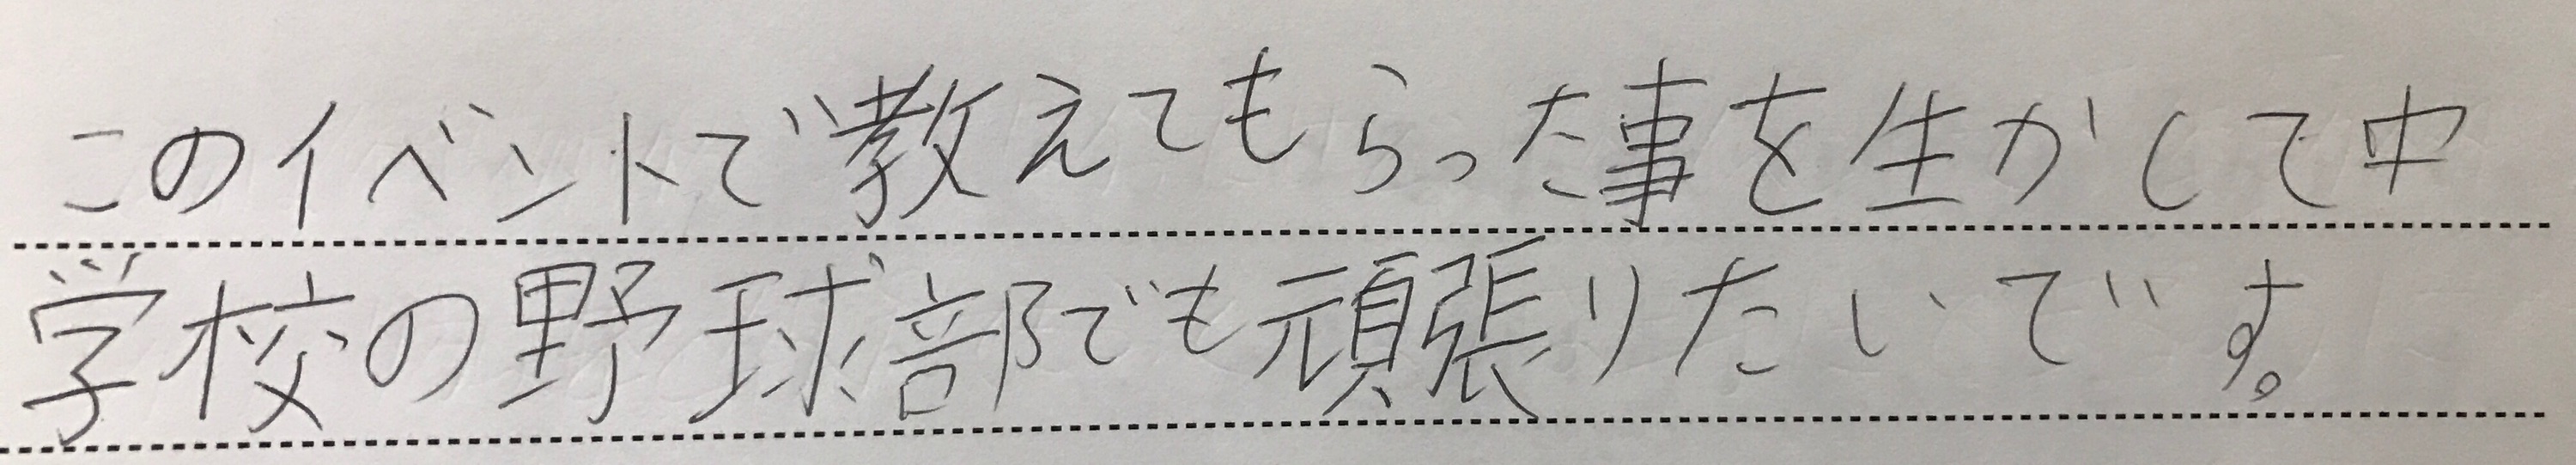 このイベントで教えてもらった事を生かして中
学校の野球部でも頑張りたいです。